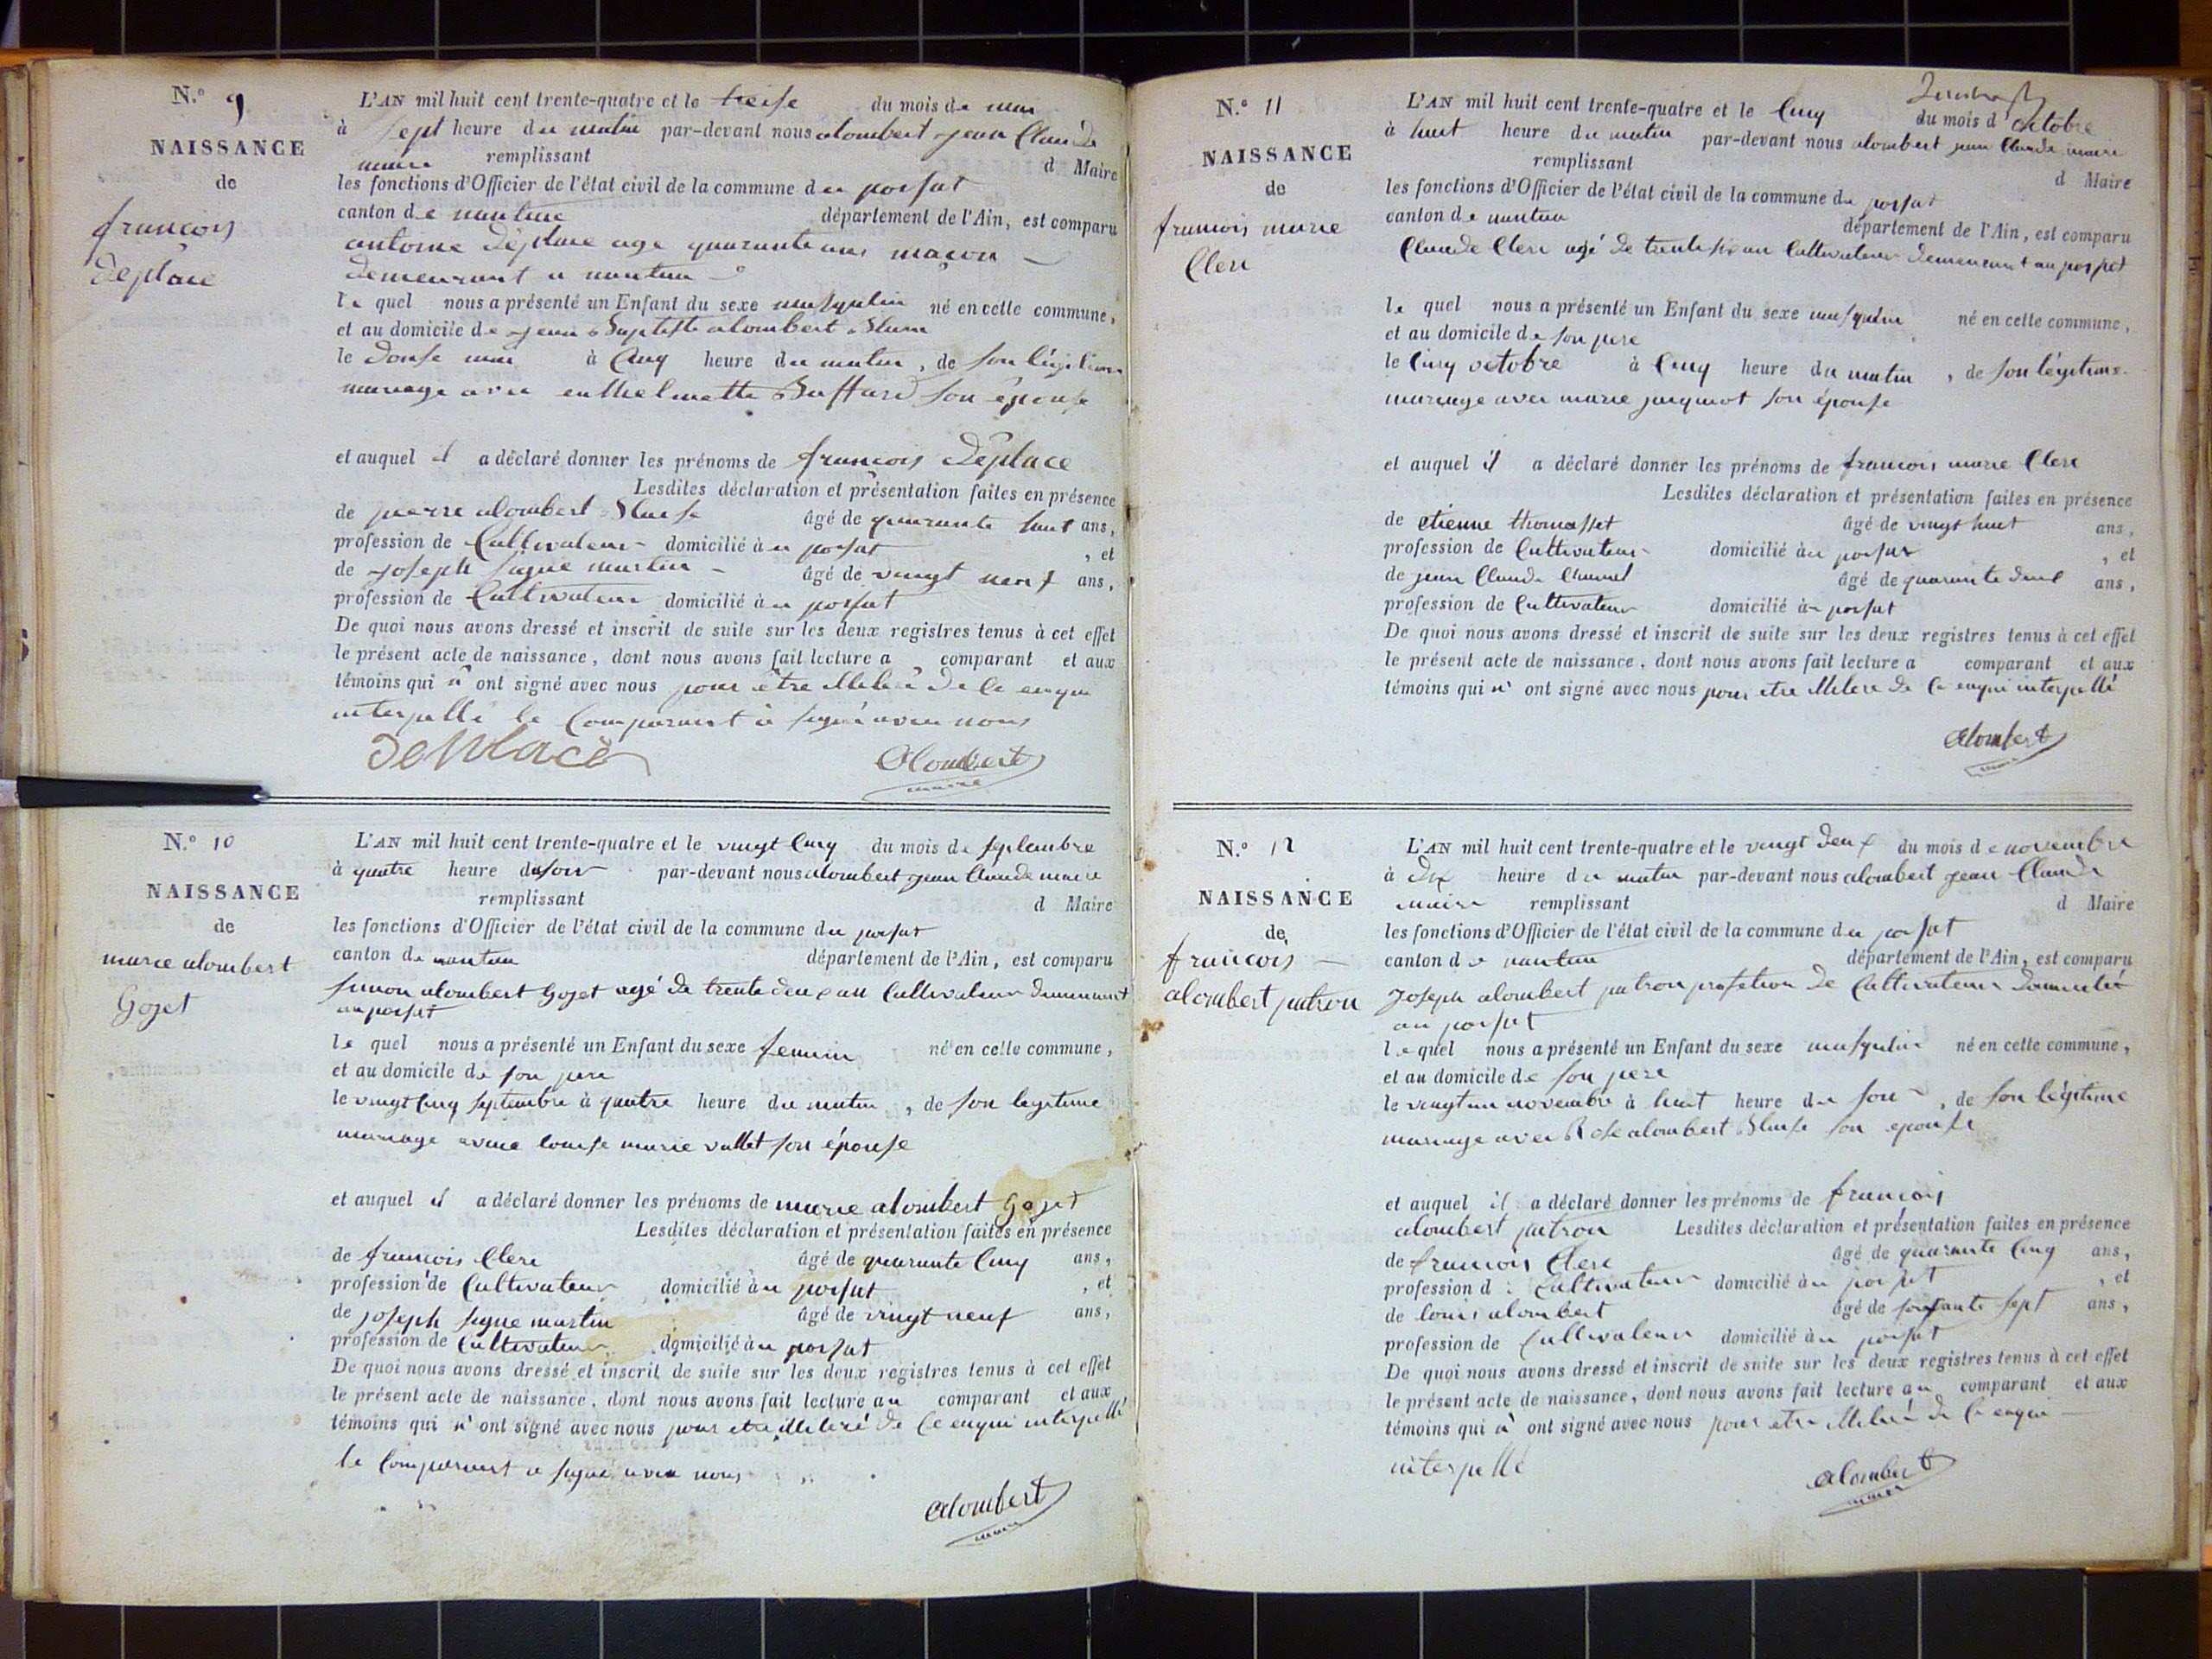 N.º 9
NAISSANCE
de
francois
deplace
L'AN mil huit cent trente-quatre et le treise du mois de mai
à sept heure du matin par-devant nous alombert jean Claude
maire remplissant d Maire
les fonctions d'Officier de l'état civil de la commune du poisat
canton de nantua département de l'Ain, est comparu
antoine déplace age quarante ans maçon
demeurant a nantua
le quel nous a présenté un Enfant du sexe masqulin né en cette commune,
et au domicile de jean Baptiste alombert
le douse mai à Cinq heure du matin, de son légitime
mariage avec Buffard son épouse
et auquel il a déclaré donner les prénoms de francois Déplace
Lesdites déclaration et présentation faites en présence
de pierre alombert Bluse âgé de quarante huit ans,
profession de Cultivateur domicilié au poisat, et
de joseph sagne martin âgé de vingt neuf ans,
profession de Cultivateur domicilié au poisat
De quoi nous avons dressé et inscrit de suite sur les deux registres tenus à cet effet
le présent acte de naissance, dont nous avons fait lecture a comparant et aux
témoins qui n' ont signé avec nous pour être illeteré de ce enqui
interpellé le Comparant à signé avec nous
Deplace Alombert
maire
N.º 10
NAISSANCE
de
marie alombert
Gojet
L'AN mil huit cent trente-quatre et le vingt Cinq du mois de septembre
à quatre heure du soir par-devant nous alombert jean Claude maire
remplissant d Maire
les fonctions d'Officier de l'état civil de la commune du poisat
canton de nantua département de l'Ain, est comparu
simon alombert Gojet agé de trente deux an Cultivateur demeurant
au poisat
le quel nous a présenté un Enfant du sexe feminin né en cette commune,
et au domicile de son pere
le vingt Cinq septembre à quatre heure du matin, de son legitime
mariage avec louise marie vallet son épouse
et auquel il a déclaré donner les prénoms de marie alombert Gojet
Lesdites déclaration et présentation faites en présence
de francois Clerc âgé de quarante Cinq ans,
profession de Cultivateur domicilié au poisat, et
de joseph sagne martin âgé de vingt neuf ans,
profession de Cultivateur domicilié au poisat
De quoi nous avons dressé et inscrit de suite sur les deux registres tenus à cet effet
le présent acte de naissance, dont nous avons fait lecture au comparant et aux
témoins qui n' ont signé avec nous pour etre illeteré de Ce enqui interpellé
le Comparant a signé avec nous
Alombert
maire
N.º 11
NAISSANCE
de
francois marie
Clerc
L'AN mil huit cent trente-quatre et le Cinq du mois d' octobre
à huit heure du matin par-devant nous alombert jean Claude maire
remplissant d Maire
les fonctions d'Officier de l'état civil de la commune du poisat
canton de nantua département de l'Ain, est comparu
Claude Clerc agé de trente six an Cultivateur demeurant au poisat
le quel nous a présenté un Enfant du sexe masqulin né en cette commune,
et au domicile de son pere
le Cinq octobre à Cinq heure du matin, de son légitime
mariage avec marie jacquiot son épouse
et auquel il a déclaré donner les prénoms de francois marie Clerc
Lesdites déclaration et présentation faites en présence
de etienne thomasset âgé de vingt huit ans,
profession de Cultivateur domicilié au poisat, et
de jean Claude âgé de quarante deux ans,
profession de Cultivateur domicilié au poisat
De quoi nous avons dressé et inscrit de suite sur les deux registres tenus à cet effet
le présent acte de naissance, dont nous avons fait lecture a comparant et aux
témoins qui n' ont signé avec nous pour etre illetere de Ce enqui interpellé
Alombert
maire
N.º 12
NAISSANCE
de
francois
alombert patron
L'AN mil huit cent trente-quatre et le vingt deux du mois de novembre
à Dix heure du matin par-devant nous alombert jean Claude
maire remplissant d Maire
les fonctions d'Officier de l'état civil de la commune du poisat
canton de nantua département de l'Ain, est comparu
joseph alombert patron profetion de Cultivateur domicilié
au poisat
le quel nous a présenté un Enfant du sexe masqulin né en cette commune,
et au domicile de son pere
le vingt un novembre à huit heure du soir, de son légitime
mariage avec Rose alombert Bluse son epouse
et auquel il a déclaré donner les prénoms de francois
alombert patron Lesdites déclaration et présentation faites en présence
de francois Clerc âgé de quarante Cinq ans,
profession d Cultivateur domicilié au poisat, et
de louis alombert âgé de soixante sept ans,
profession de Cultivateur domicilié au poisat
De quoi nous avons dressé et inscrit de suite sur les deux registres tenus à cet effet
le présent acte de naissance, dont nous avons fait lecture au comparant et aux
témoins qui n' ont signé avec nous pour etre illeteré de Ce enqui
interpellé
alombert
maire